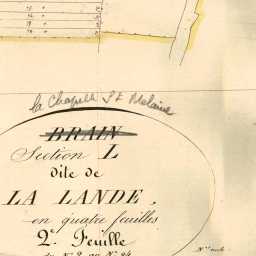 la Chapelle St Melaine
BRAIN
Section L
dite de
LA LANDE,
en quatre feuilles
2e Feuille
du No